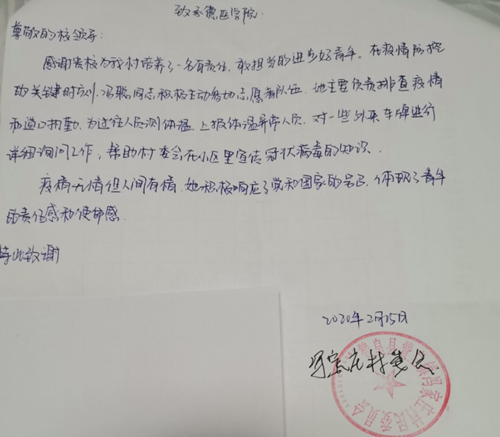 致承德医学院
尊敬的校领导:
感谢贵校为我村培养了一名有责任、敢担当的进步好青年。在疫情防控
的关键时刻,冯聪同志积极主动参加志愿者队伍。她主要负责排查疫情
和道口执勤,为过往人员测体温,上报体温异常人员,对一些外来车牌进行
详细询问工作,帮助村委会在小区里宣传冠状病毒的知识。
疫情无情但人间有情,她积极响应了党和国家的号召,体现了青年
的责任感和使命感。
特此致谢
2020年2月15日
村委会